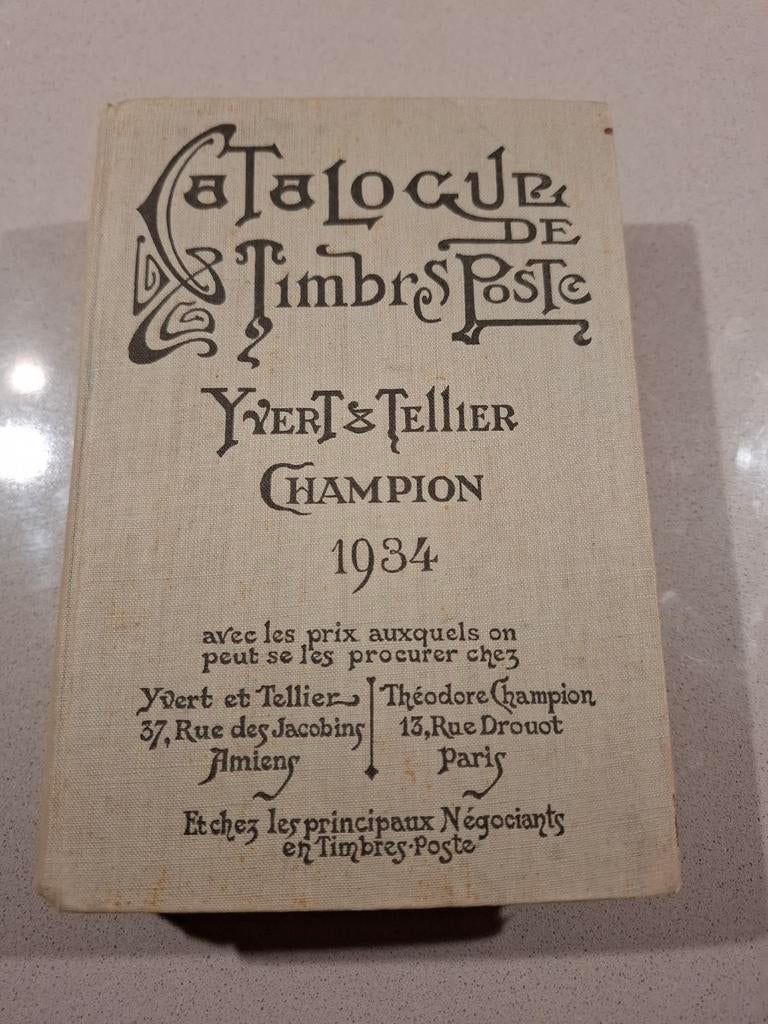 Catalogue
DE
Timbrs Poste
Yvert & Tellier
Champion
1934
avec les prix auxquels on
peut se les procurer chez
Yvert et Tellier
37, Rue des Jacobins
Amiens
Théodore Champion
13, Rue Drouot
Paris
Et chez les principaux Négociants
en Timbres-Poste